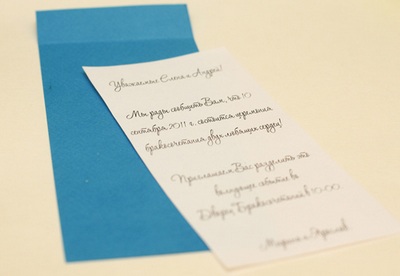 Уважаемые Елена и Андрей!
Мы рады сообщить Вам, что 10
сентября 2011 г. состоится церемония
бракосочетания двух любящих сердец!
Приглашаем Вас разделить это
волнующее событие во
Дворец Бракосочетаний в 10-00
Марина и Ярослав